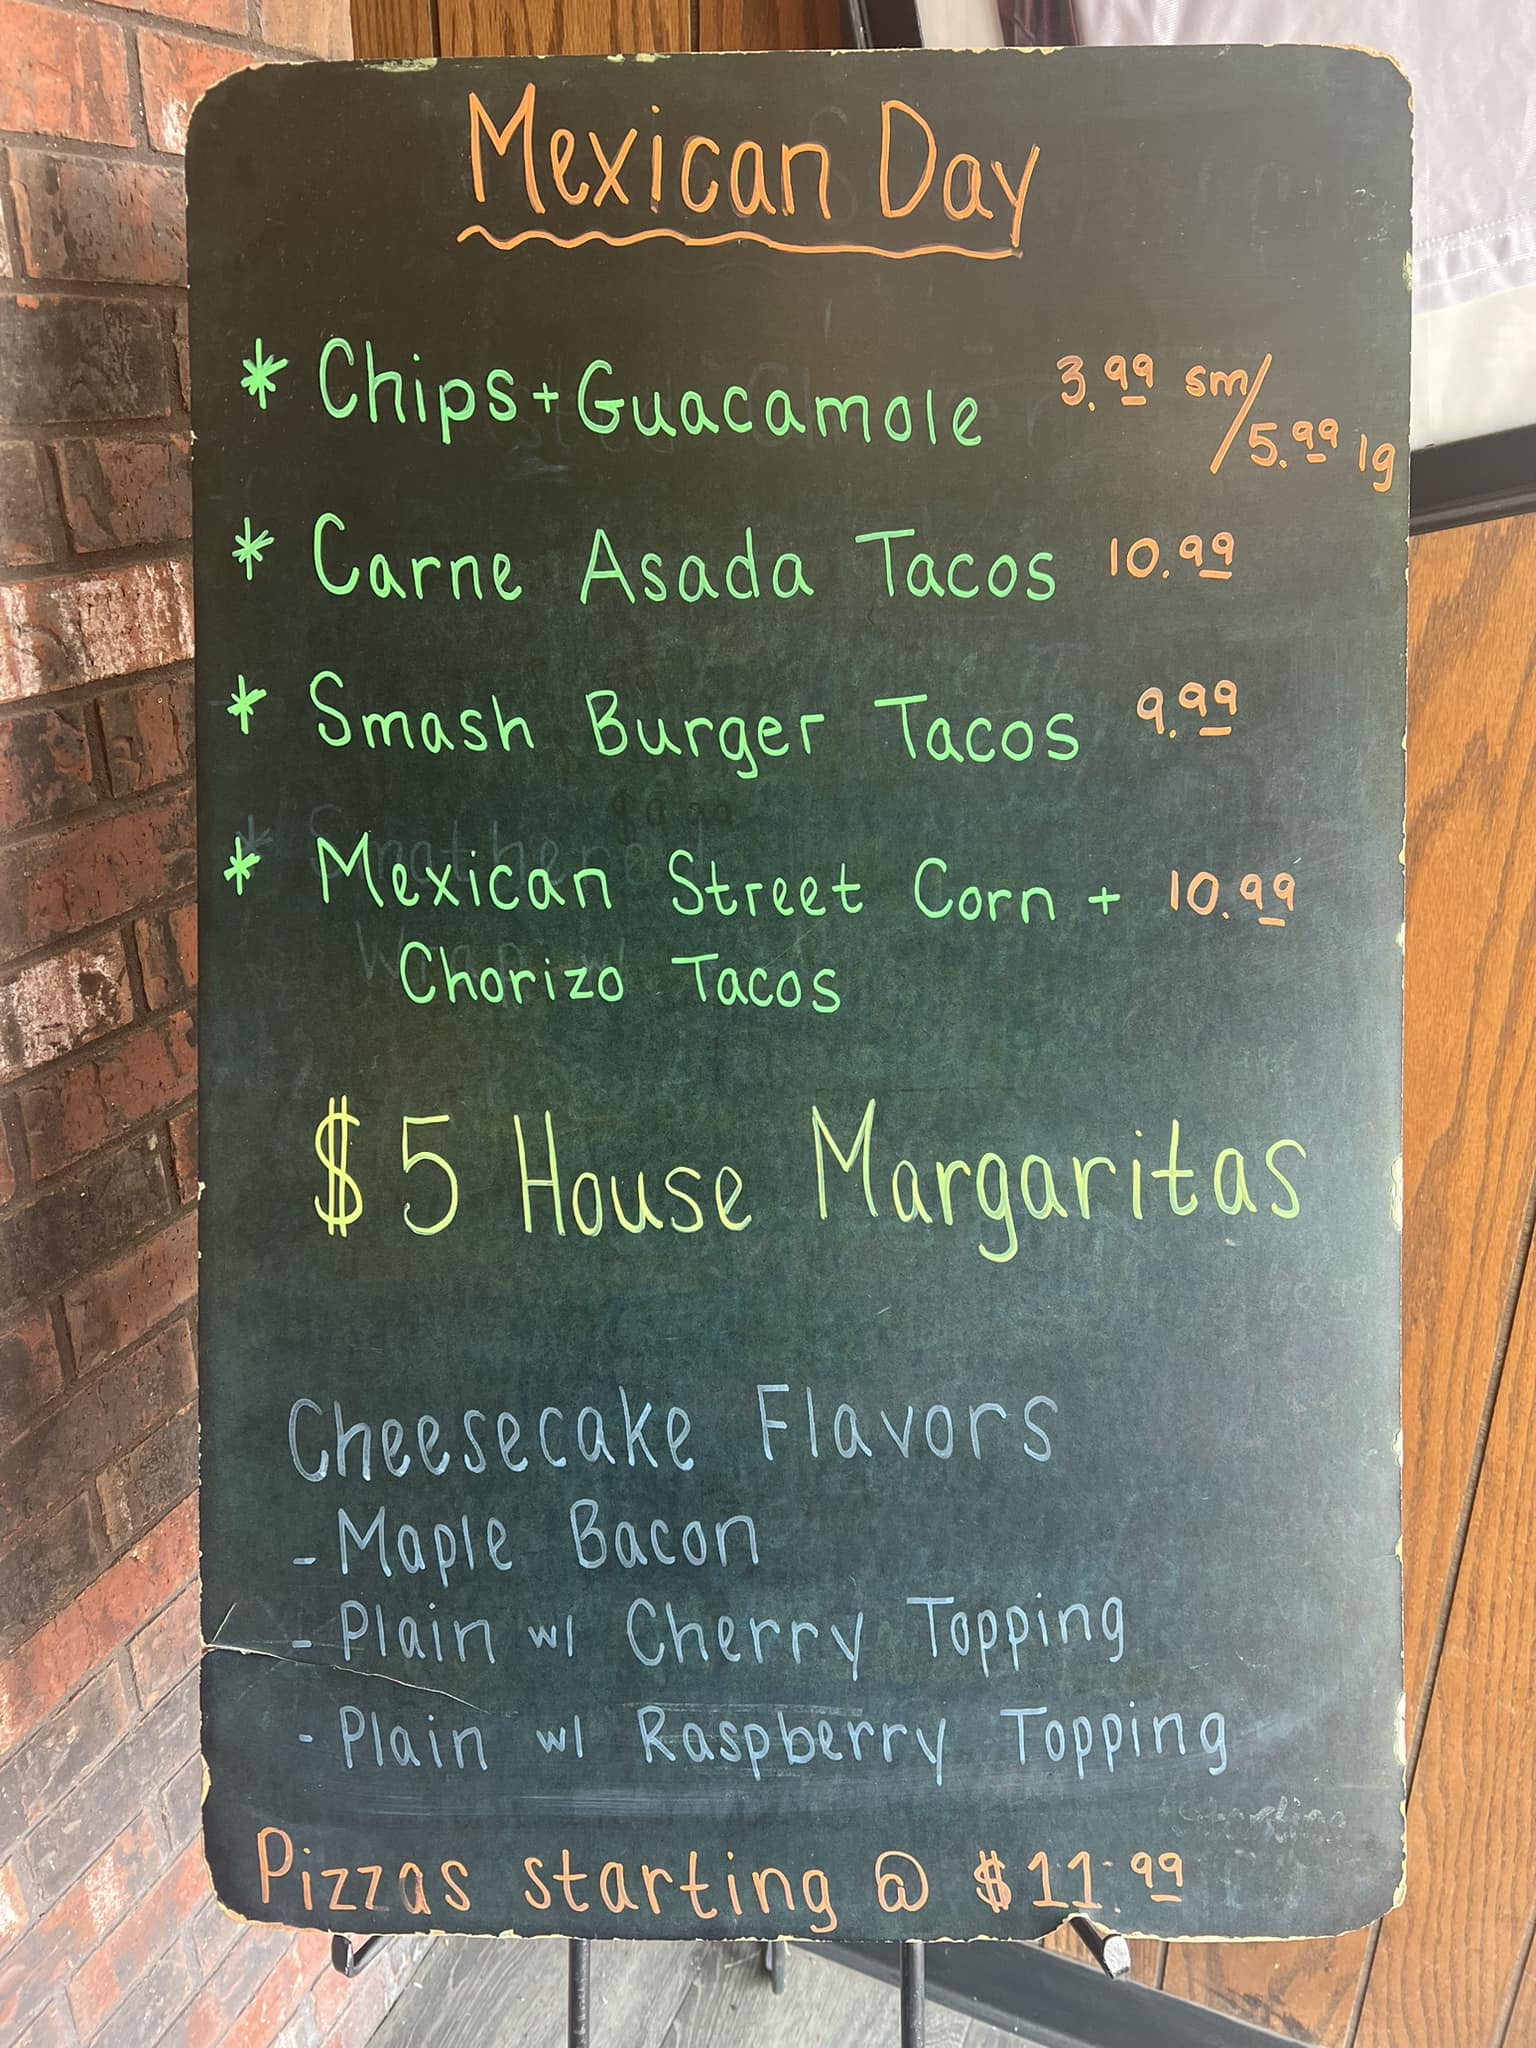 Mexican Day
* Chips + Guacamole 3.99 sm/
5.99 lg
* Carne Asada Tacos 10.99
* Smash Burger Tacos 9.99
* Mexican Street Corn + 10.99
Chorizo Tacos
$5 House Margaritas
Cheesecake Flavors
- Maple Bacon
- Plain w/ Cherry Topping
- Plain w/ Raspberry Topping
Pizzas starting @ $11.99